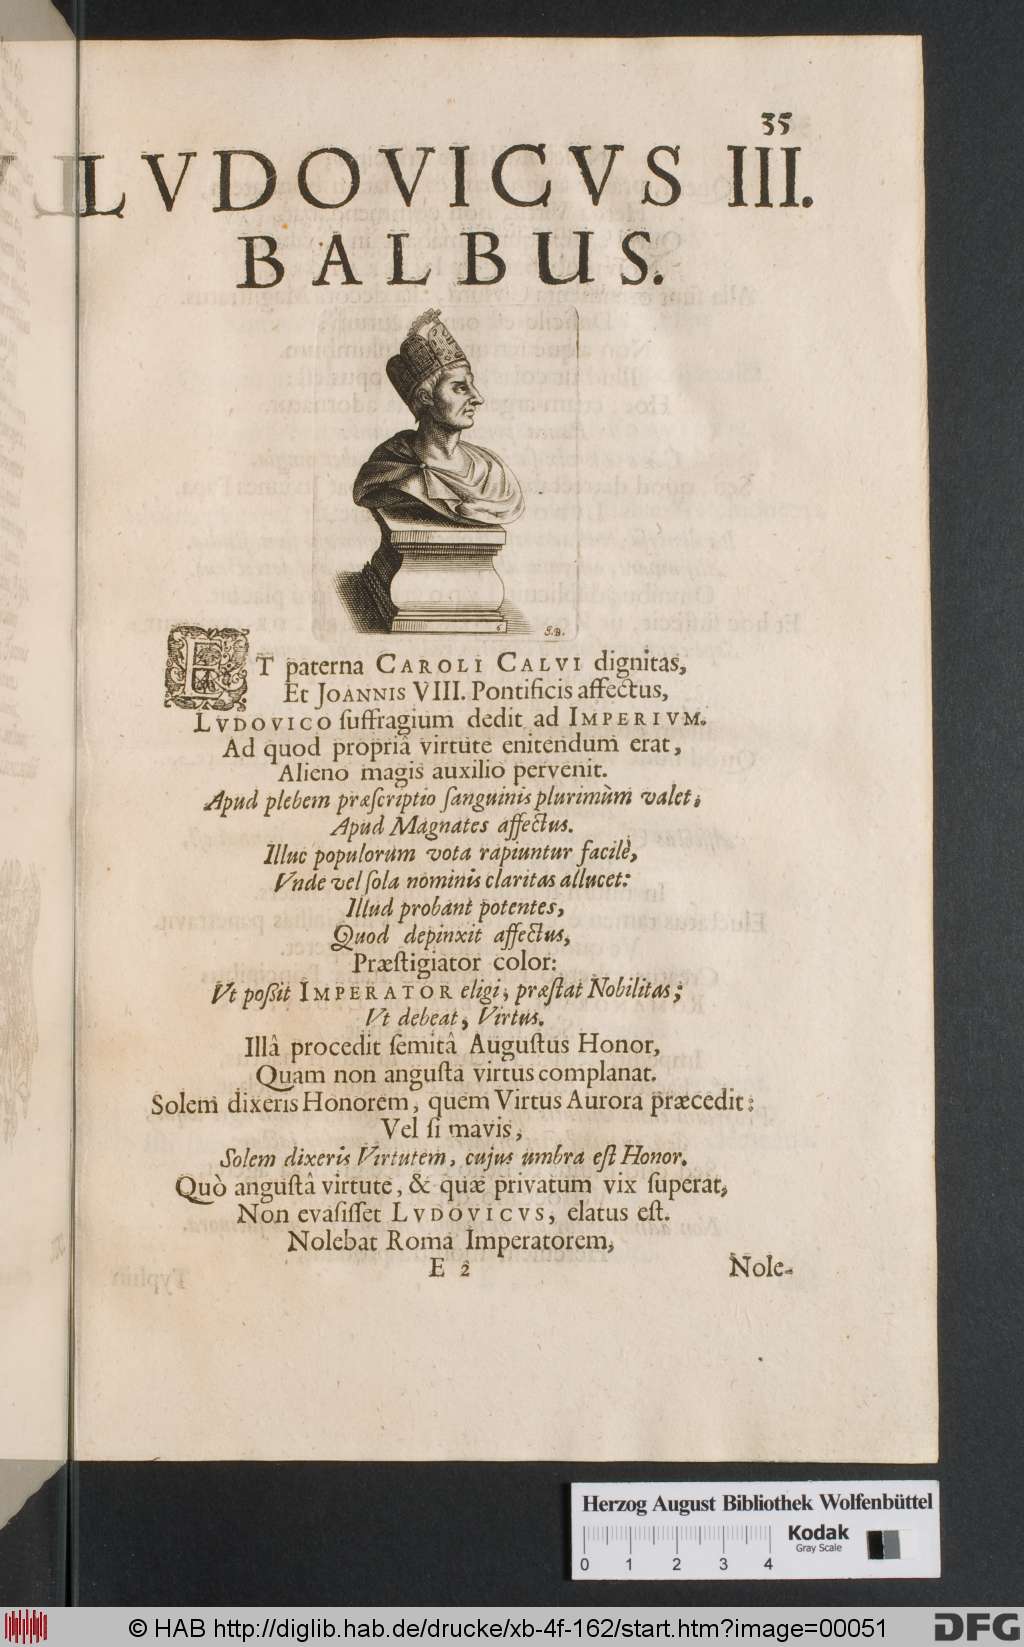 35
LVDOVICVS III.
BALBUS.
6
S.B.
ET paterna CAROLI CALVI dignitas,
Et JOANNIS VIII. Pontificis affectus,
LVDOVICO ſuffragium dedit ad IMPERIVM.
Ad quod propriâ virtute enitendum erat,
Alieno magis auxilio pervenit.
Apud plebem præſcriptio ſanguinis plurimùm valet;
Apud Magnates affectus.
Illuc populorum vota rapiuntur facilè,
Vnde vel ſola nominis claritas allucet:
Illud probant potentes,
Quod depinxit affectus,
Præſtigiator color:
Vt poßit IMPERATOR eligi, præſtat Nobilitas;
Vt debeat, Virtus.
Illâ procedit ſemitâ Auguſtus Honor,
Quam non anguſta virtus complanat.
Solem dixeris Honorem, quem Virtus Aurora præcedit:
Vel ſi mavis,
Solem dixeris Virtutem, cujus umbra eſt Honor.
Quò anguſtâ virtute, & quæ privatum vix ſuperat,
Non evaſiſſet LVDOVICVS, elatus eſt.
Nolebat Roma Imperatorem,
E 2 Nole-
Herzog August Bibliothek Wolfenbüttel
Kodak
Gray Scale
0 1 2 3 4
© HAB http://diglib.hab.de/drucke/xb-4f-162/start.htm?image=00051
DFG